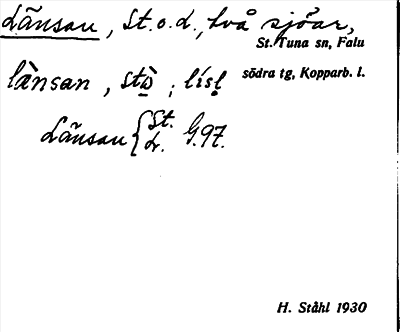 Länsan, St. o. L., två sjöar,
St. Tuna sn, Falu
södra tg, Kopparb. l.
lä̀nsan, stò̱ ; lísḷ
Länsan { St. G. 97.
L.
H. Ståhl 1930